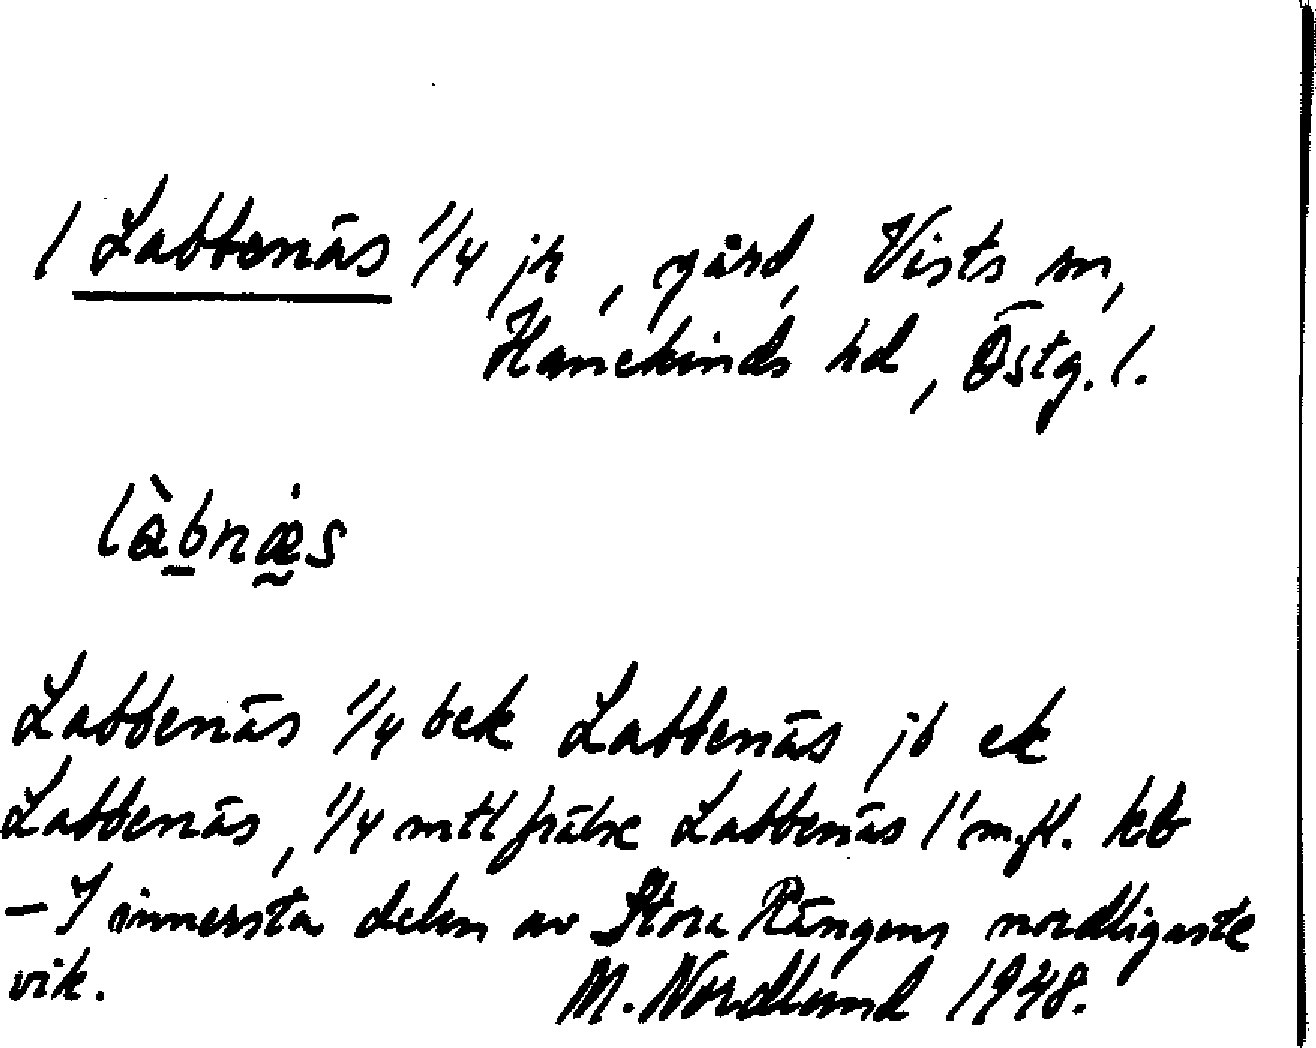 1 Labbenäs 1/4 jk, gård, Vists sn,
Hanekinds hd, Östg. l.
làbnæs
Labbenäs 1/4 bek Labbenäs jb ek
Labbenäs, 1/4 mtl frälse Labbenäs 1¹ m.fl. kb
– I innersta delen av Stora Rängens nordligaste
vik. M. Nordlund 1948.